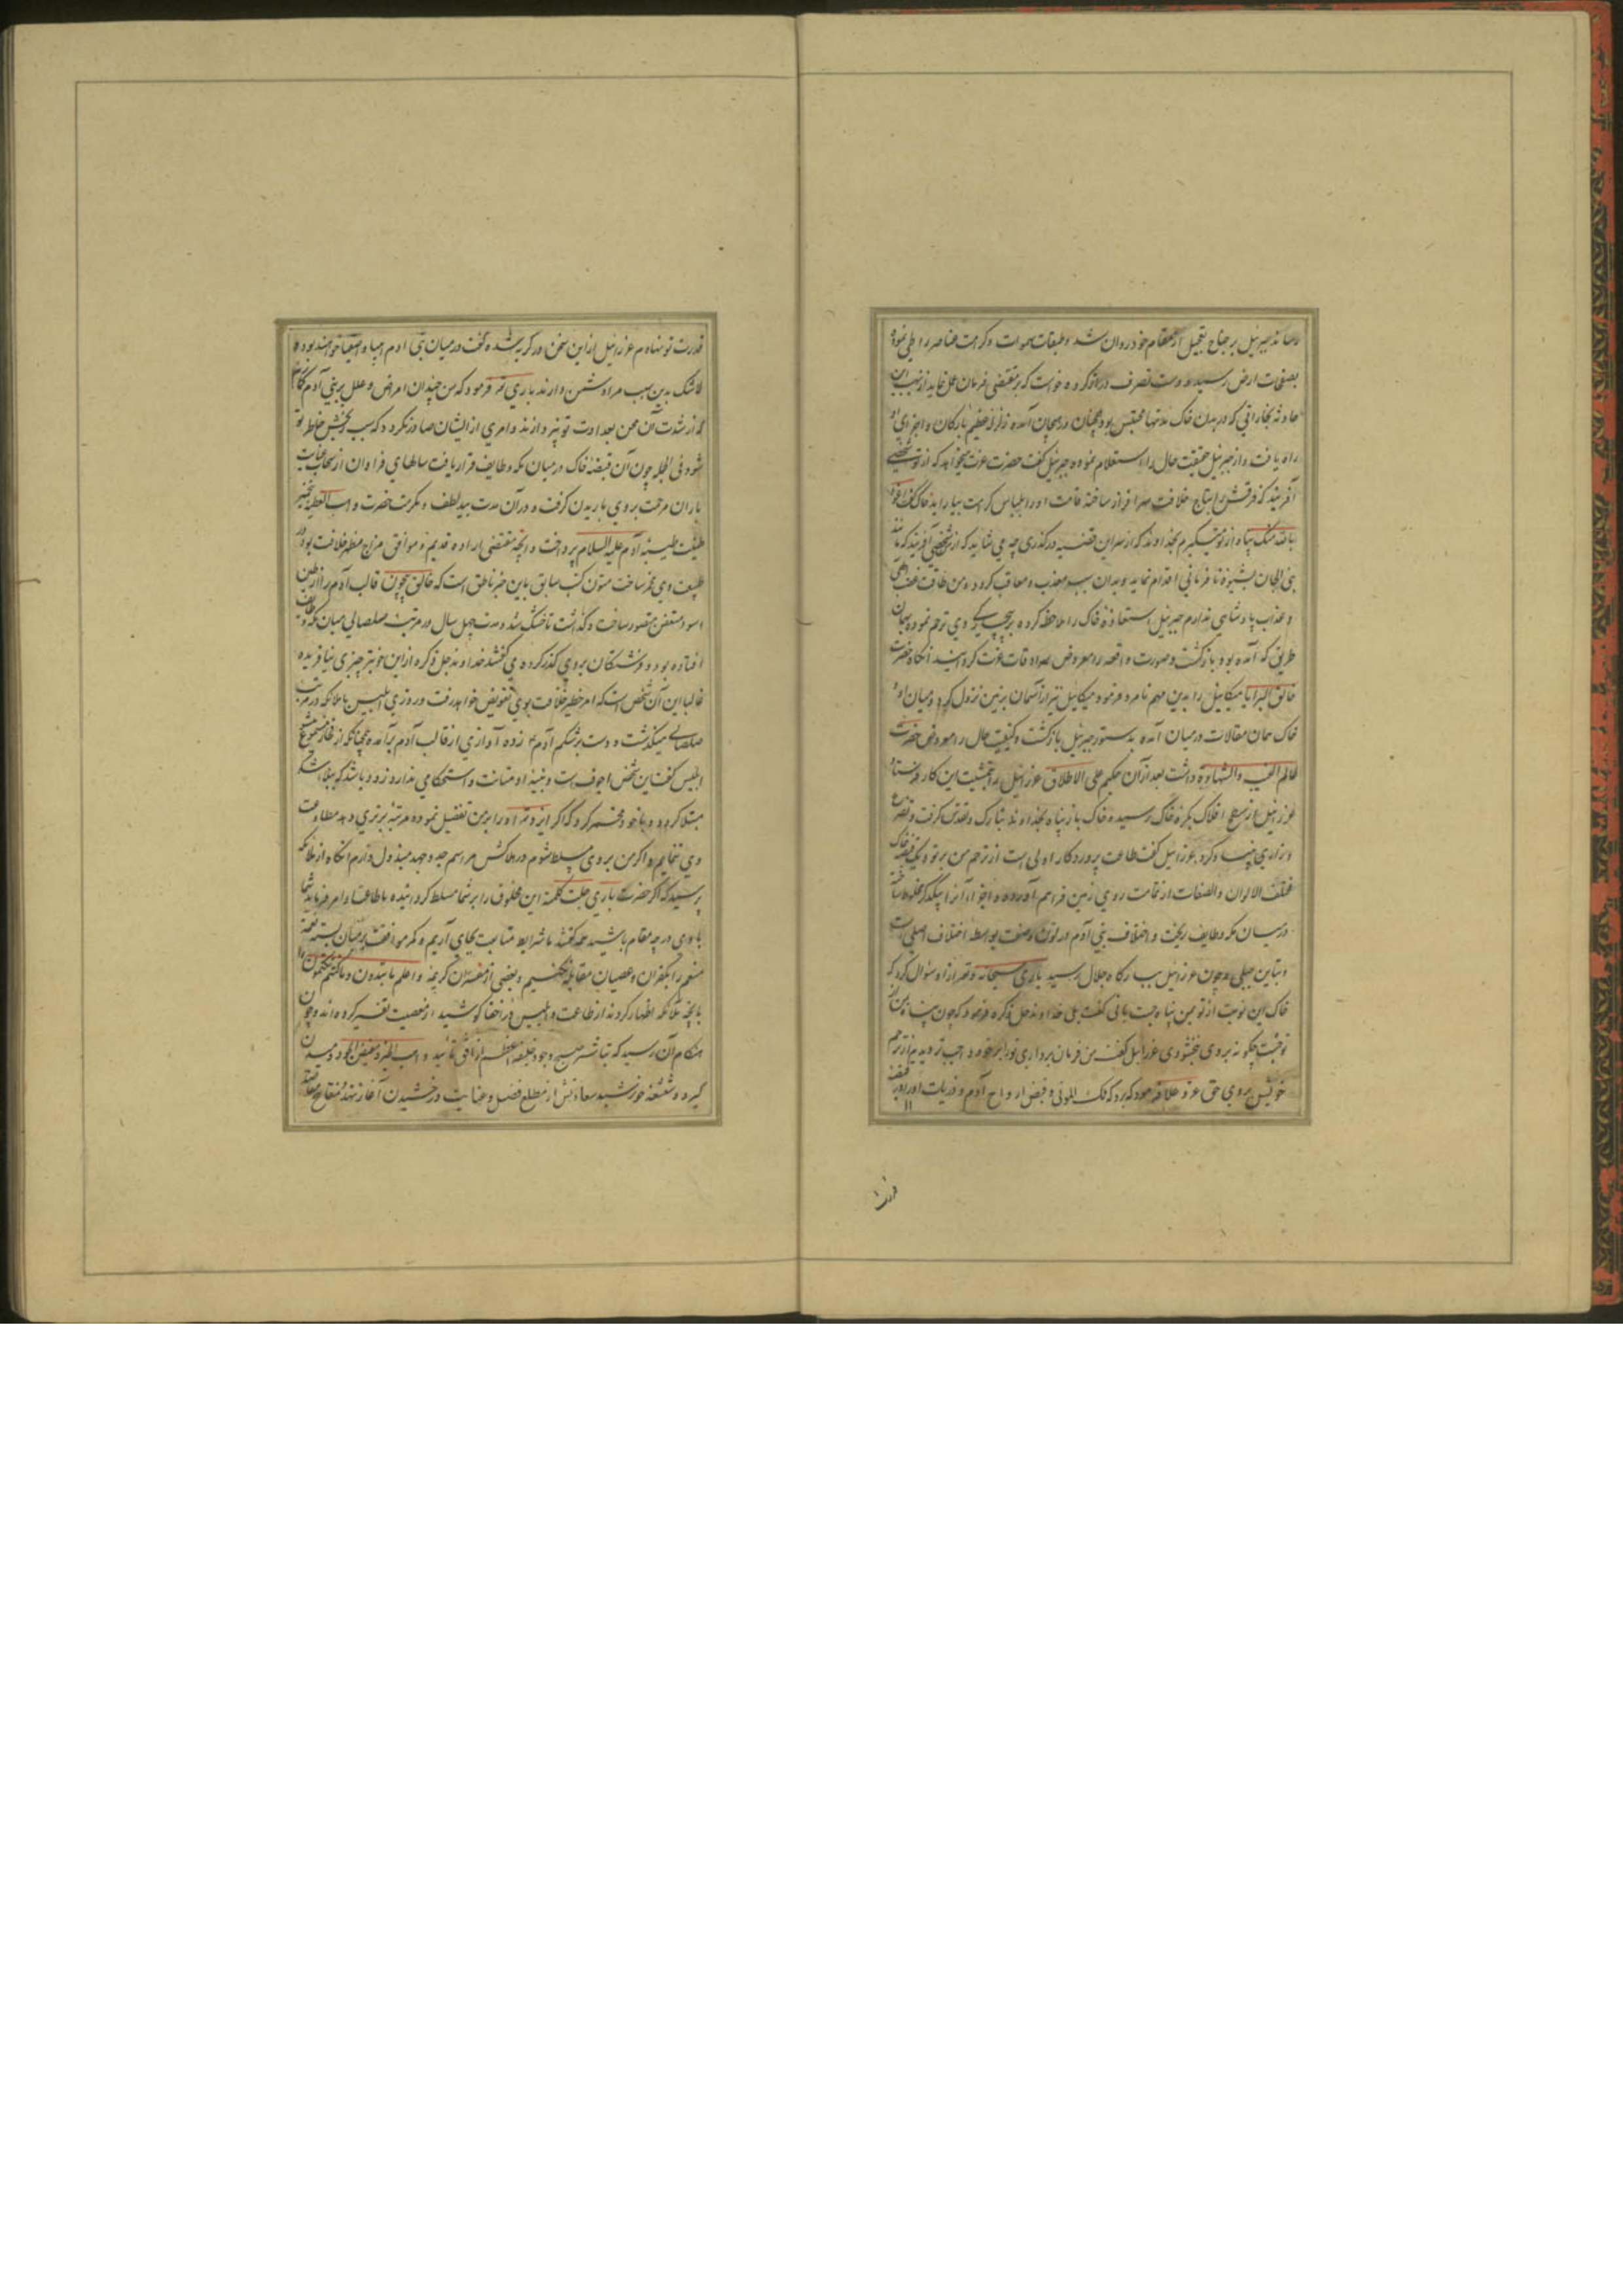 رساند جبرئیل بر جناح تعجیل از مقام خود روان شد و طبقات سموات و کرات عناصر را طی نموده
بصفحات ارض رسید و دست تصرف دراز کرده خواست که بر مقتضی فرمان عمل نماید از نهیب این
حادثه بخاراتی که در بدن خاک مدتها محتبس بود در هیجان آمده زلزله عظیم بارکان و اجزای او
راه یافت و از جبرئیل حقیقت حال را استعلام نموده جبرئیل گفت حضرت عزت میخواهد که از تو شخصی
آفریند که فرقش را بتاج خلافت سرافراز ساخته قامت او را بلباس کرامت بیاراید خاک گفت اعوذ
بالله منک پناه از تو میگیرم بخداوند که از سر این قضیه درگذری چه می شاید که از من شخصی آفریند که مانند
بنی الجان بشیوه نافرمانی اقدام نماید و بدان سبب معذب و معاقب گردد و من طاقت غضب الهی
و عذاب پادشاهی ندارم جبرئیل استعاذه خاک را ملاحظه کرده بر وی ترحم نموده بهمان
طریق که آمده بود بازگشت و صورت واقعه را معروض سرادقات عزت گردانید آنگاه حضرت
خالق البرایا میکائیل را بدین مهم نامزد فرمود میکائیل نیز از آسمان بزمین نزول کرد و میان او و
خاک همان مقالات در میان آمده بدستور جبرئیل بازگشت و کیفیت حال را معروض حضرت
عالم الغیب والشهاده داشت بعد از آن حکیم علی الاطلاق عزرائیل را بتمشیت این کار فرستاد
عزرائیل از سطح افلاک بکره خاک رسیده خاک باز پناه بخداوند تبارک و تقدس گرفت و تضرع
و زاری بنیاد کرد عزرائیل گفت طاعت پروردکار اولی است از ترحم من بر تو و یک قبضه خاک
مختلف الالوان والصفات از تمامت روی زمین فراهم آورده و اجزاء آنرا بیکدگر مخلوط ساخته
در میان مکه و طایف ریخت و اختلاف بنی آدم در لون و صفت بواسطه اختلاف اصلی است
و تباین جبلی و چون عزرائیل ببارگاه جلال رسید باری سبحانه و تعالی از او سؤال کرد که
خاک این نوبت از تو بمن پناه جست یا نی گفت بلی خداوند جل ذکره فرمود که چون پناه بمن از
تو جست چگونه بر وی نبخشودی عزرائیل گفت من فرمان برداری تو را بر خود واجب تر دیدم از ترحم
خویش بر وی حق عز و علا فرمود که برو که ملک الموتی و قبض ارواح آدم و ذریات او را در قبضه
قدرت
قدرت تو نهادم عزرائیل از این سخن در گریه شده گفت در میان بنی آدم انبیا و اصفیا خواهند بود و
لاشک بدین سبب مرا دشمن دارند باری تعالی فرمود که من چندان امراض و علل بر بنی آدم گمارم
که از شدت آن محن بعداوت تو نپردازند و امری از ایشان صادر نگردد که سبب رنجش خاطر تو
شود فی الجمله چون آن قبضه خاک در میان مکه و طایف قرار یافت سالهای فراوان از سحاب عنایت
باران مرحمت بر وی باریدن گرفت و در آن مدت بید لطف و مکرمت حضرت واهب العطیه بتخمیر
طینت طیبه آدم علیه السلام پرداخت و آنچه مقتضی اراده قدیم و موافق مزاج منظر خلافت بود در
طبیعت وی مخمر ساخت متون کتب سابق باین خبر ناطق است که خالق بیچون قالب آدم را از طین
اسود متعفن مصور ساخت و گذاشت تا خشک شد و مدت چهل سال در مرتبه صلصالی میان مکه و طایف
افتاده بود و فرشتگان بر وی گذر کرده می گفتند خداوند جل ذکره از این خوبتر چیزی نیافریده
غالبا این آن شخص است که امر خطیر خلافت بوی تفویض خواهد رفت و روزی ابلیس با ملائکه در مرتبه
صلصالی میگذشت و دست بر شکم آدم زده آوازی از قالب آدم برآمده همچنانکه از فخار مسموع شود
ابلیس گفت این شخص اجوف است و بنیه او متانت و استحکامی ندارد زود باشد که ببلا
مبتلا گردد و با خود مخمر کرد که اگر ایزد تعالی او را بر من تفضیل نموده مرتبه برتری دهد مطاوعت
وی ننمایم و اگر من بر وی مسلط شوم در هلاکش مراسم جد و جهد مبذول دارم آنگاه از ملائکه
پرسید که اگر حضرت باری جلت کلمته این مخلوق را بر شما مسلط گردانیده باطاعت او امر فرماید شما
با وی در چه مقام باشید همه گفتند ما شرایط متابعت بجای آریم و کمر موافقت بر میان بسته نعمت
منعم را بکفران و عصیان مقابله نکنیم و بعضی از مفسران کریمه و اعلم ما تبدون و ما کنتم تکتمون را
بآنچه ملائکه اظهار کردند از طاعت و ابلیس در اخفا کوشید از معصیت تفسیر کرده اند و چون
هنگام آن رسید که تباشیر صبح وجود خلیفه اعظم از افق تأیید واهب و مفیض الجود دمیدن
گیرد و شعشعه خورشید سعادتش از مطلع فضل و عنایت درخشیدن آغاز نهد مفتاح